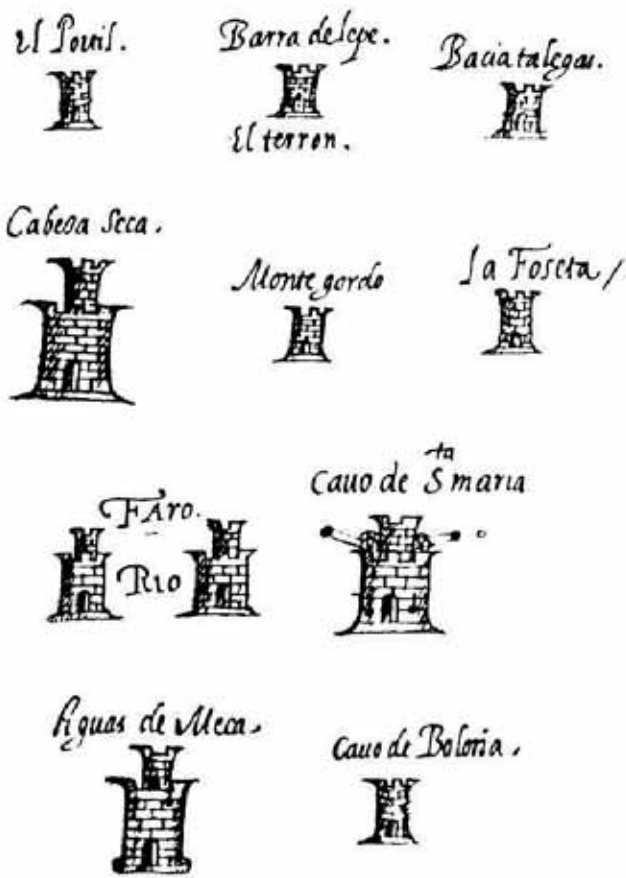 El Portil.
Barra de lepe.
Bacia talegas.
El terron.
Cabeça Seca.
Monte gordo
la Foseta /
FAro.
RIO
Cauo de Sta maria
Aguas de Meca.
Cauo de Boloña.